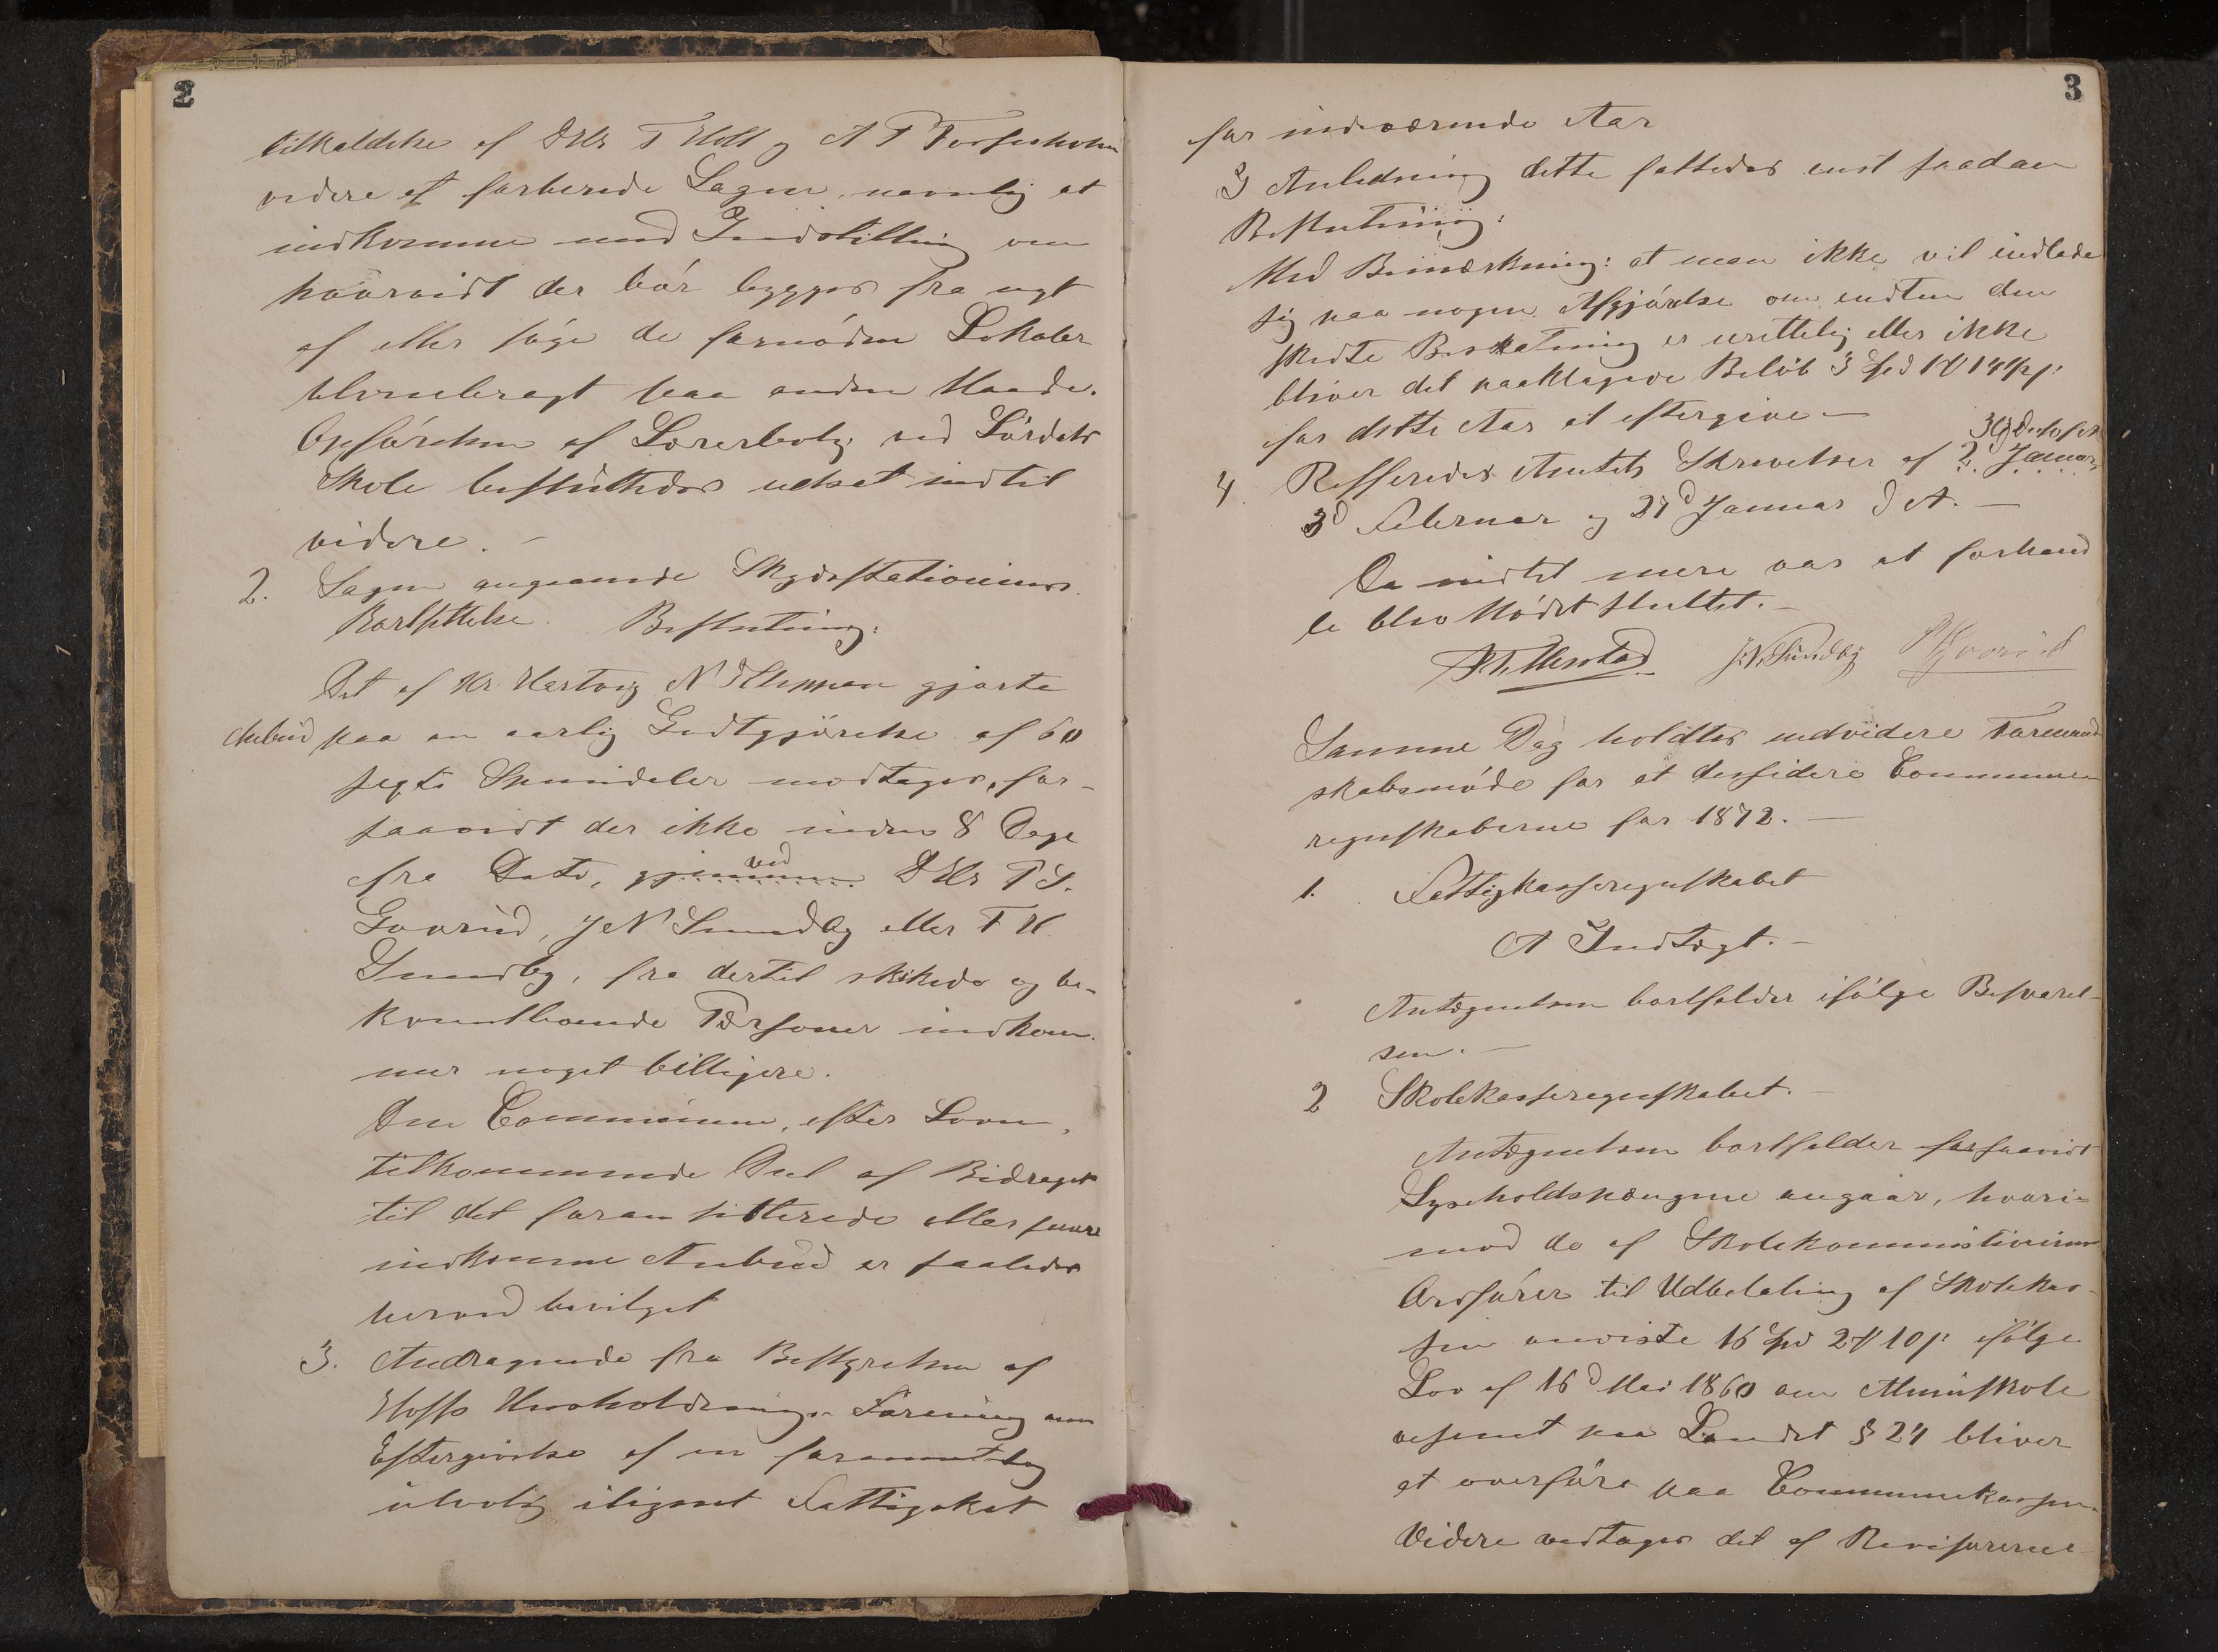 2
tilkaldelse af DHr T Holt og A P Torfinsholm
videre at forberede Sagen, navnlig at
indkomme med Indstilling om
hvorvidt der bör bygges fra nyt
af eller söge de fornödne Lokaler
tilveiebragt paa anden Maade.
Opförelsen af Lærerbolig ved Lördals
Skole besluttedes udsat indtil
videre. –
2. Sagen angaaende Skydsstationens
Bortsættelse. Beslutning:
Det af Hr Hartvig N Klippan gjorte
Anbud paa en aarlig Godtgjörelse af 60
sexti Speciedaler modtages, for-
saavidt der ikke inden 8 Dage
fra Dato, gjennem ved DHr P S.
Gvarud, J N Sundby eller T H
Sundby, fra dertil skikkede og be-
kvemtboende Personer indkom-
mer noget billigere.
Den Communen, efter Loven,
tilkommende Del af Bidraget
til det foran siterede eller senere
indkomne Anbud er saaledes
herved bevilget
3. Andragende fra Bestyrelsen af
Huusholdnings-Forening om
Eftergivelse af en formentlig
ulovlig ilignet Fattigskat
3
for indeværende Aar
I Anledning dette fattedes eenst saadan
Beslutning:
Med Bemærkning: at man ikke vil indlade
sig paa nogen Afgjörelse om endten den
skedte Beskatning er urettelig eller ikke
bliver det paaklagede Belöb 3 Spd 1 Ort 14 sk
for dette Aar at eftergive –
4. Reffereredes Amtets Skrivelser af 2 Januar
3d Februar og 27d Januar d A. –
Da indtet mere var at forhand
le blev Mödet sluttet. –
J. N. Sundby
Samme Dag holdtes endvidere Formand
skabsmöde for at dessidere Commune
regnskaberne for 1872. –
1. Fattigkasseregnskabet
A Indtægt. –
Antegnelsen bortfalder ifölge Besvarel-
sen. –
2 Skolekasseregnskabet. –
Antegnelsen bortfalder forsaavidt
Lyseholdspengene angaar, hvori-
mod de af Skolekommistionens
Ordförer til Udbetaling af Skolekas-
sen anviste 16 Spd 2 Ort 10 sk ifölge
Lov af 16d Mai 1860 om Almuskole
vesenet paa Landet § 24 bliver
at overföre paa Communekassen.
Videre vedtages det af Revisorerne